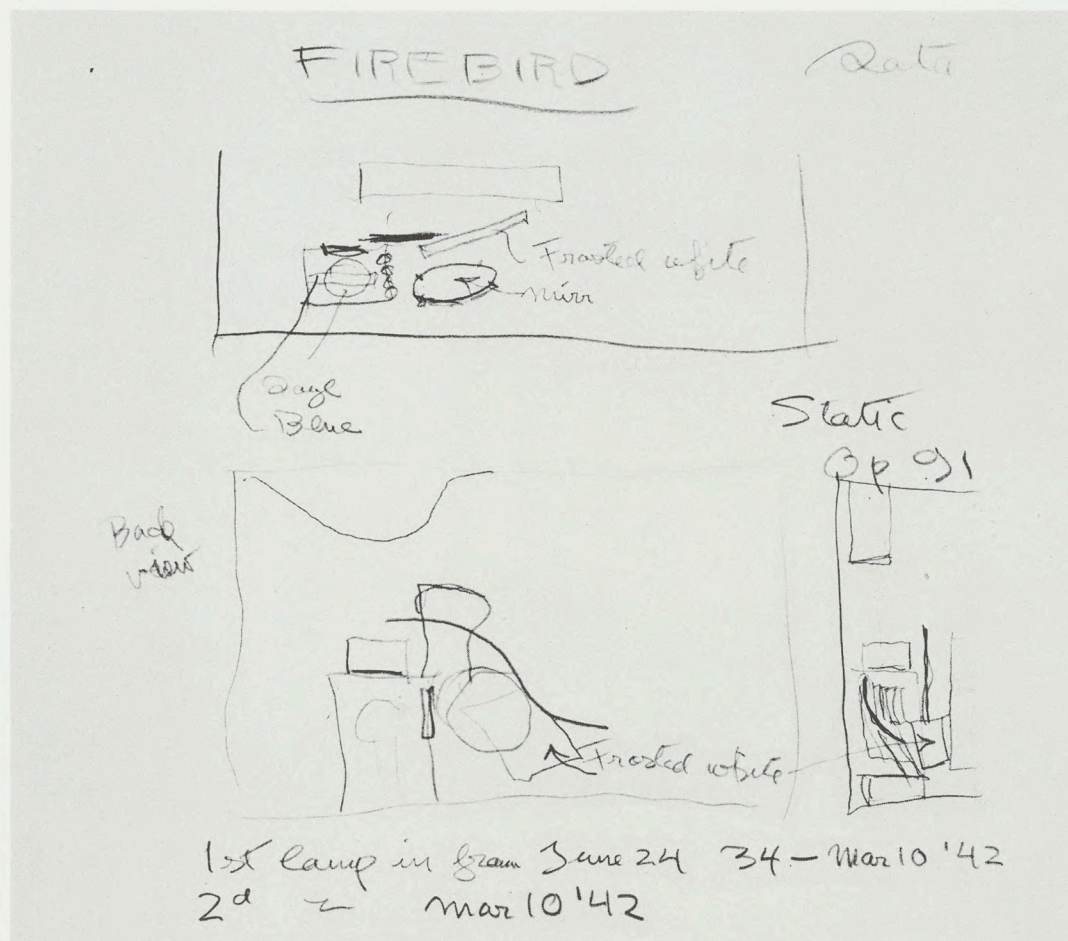 FIREBIRD
Frosted white
mirr
Dayl
Blue
Static
Op 91
Back
view
Frosted white
1st lamp in from June 24 34 - Mar 10 '42
2d Mar 10 '42